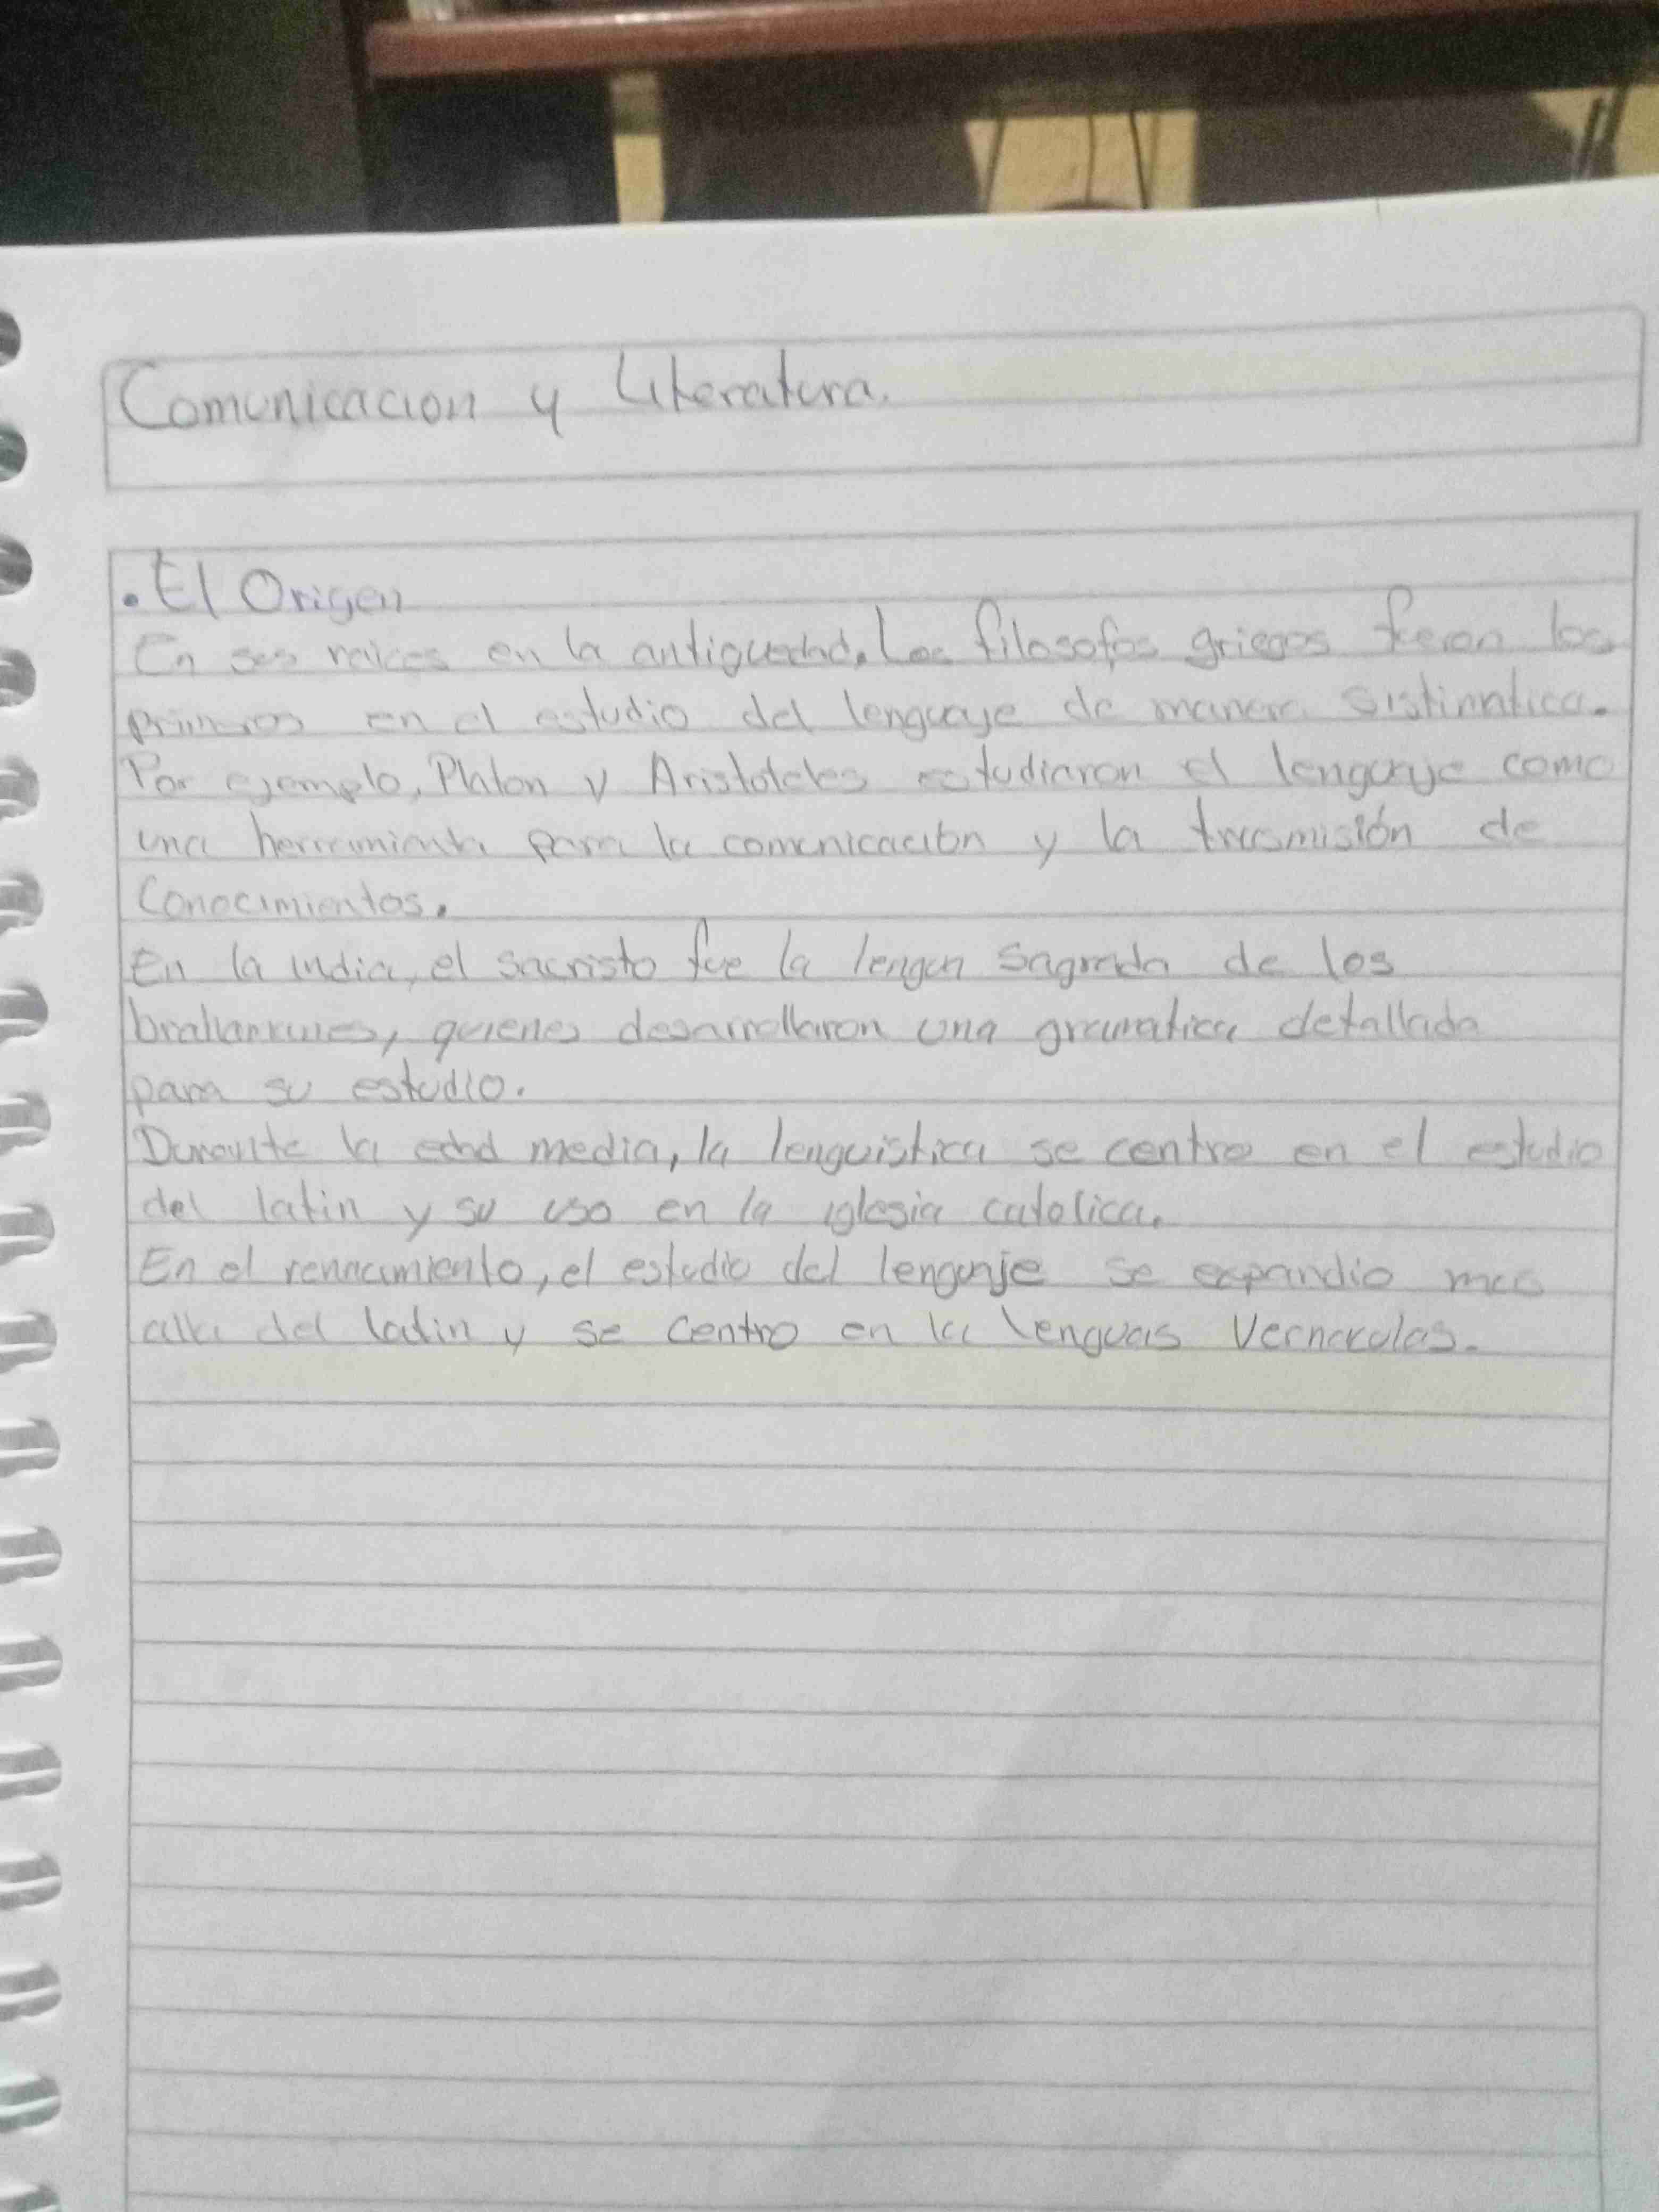 Comunicacion y Literatura.
. El Origen
En ses raices en la antiguedad. Los filosofos griegos fueron los
primeros en el estudio del lenguaje de manera sistimatica.
Por ejemplo, Platon y Aristoteles estudiaron el lenguaje como
una herramienta para la comunicación y la trasmisión de
Conocimientos.
En la india, el sacristo fue la lengua sagrada de los
quienes desarrollaron una gramatica detallada
para su estudio.
Durante la edad media, la lenguistica se centro en el estudio
del latin y su uso en la iglesia catolica.
En el renacimiento, el estudio del lenguaje se expandio mas
alla del latin y se centro en la lenguas Vernaculas.